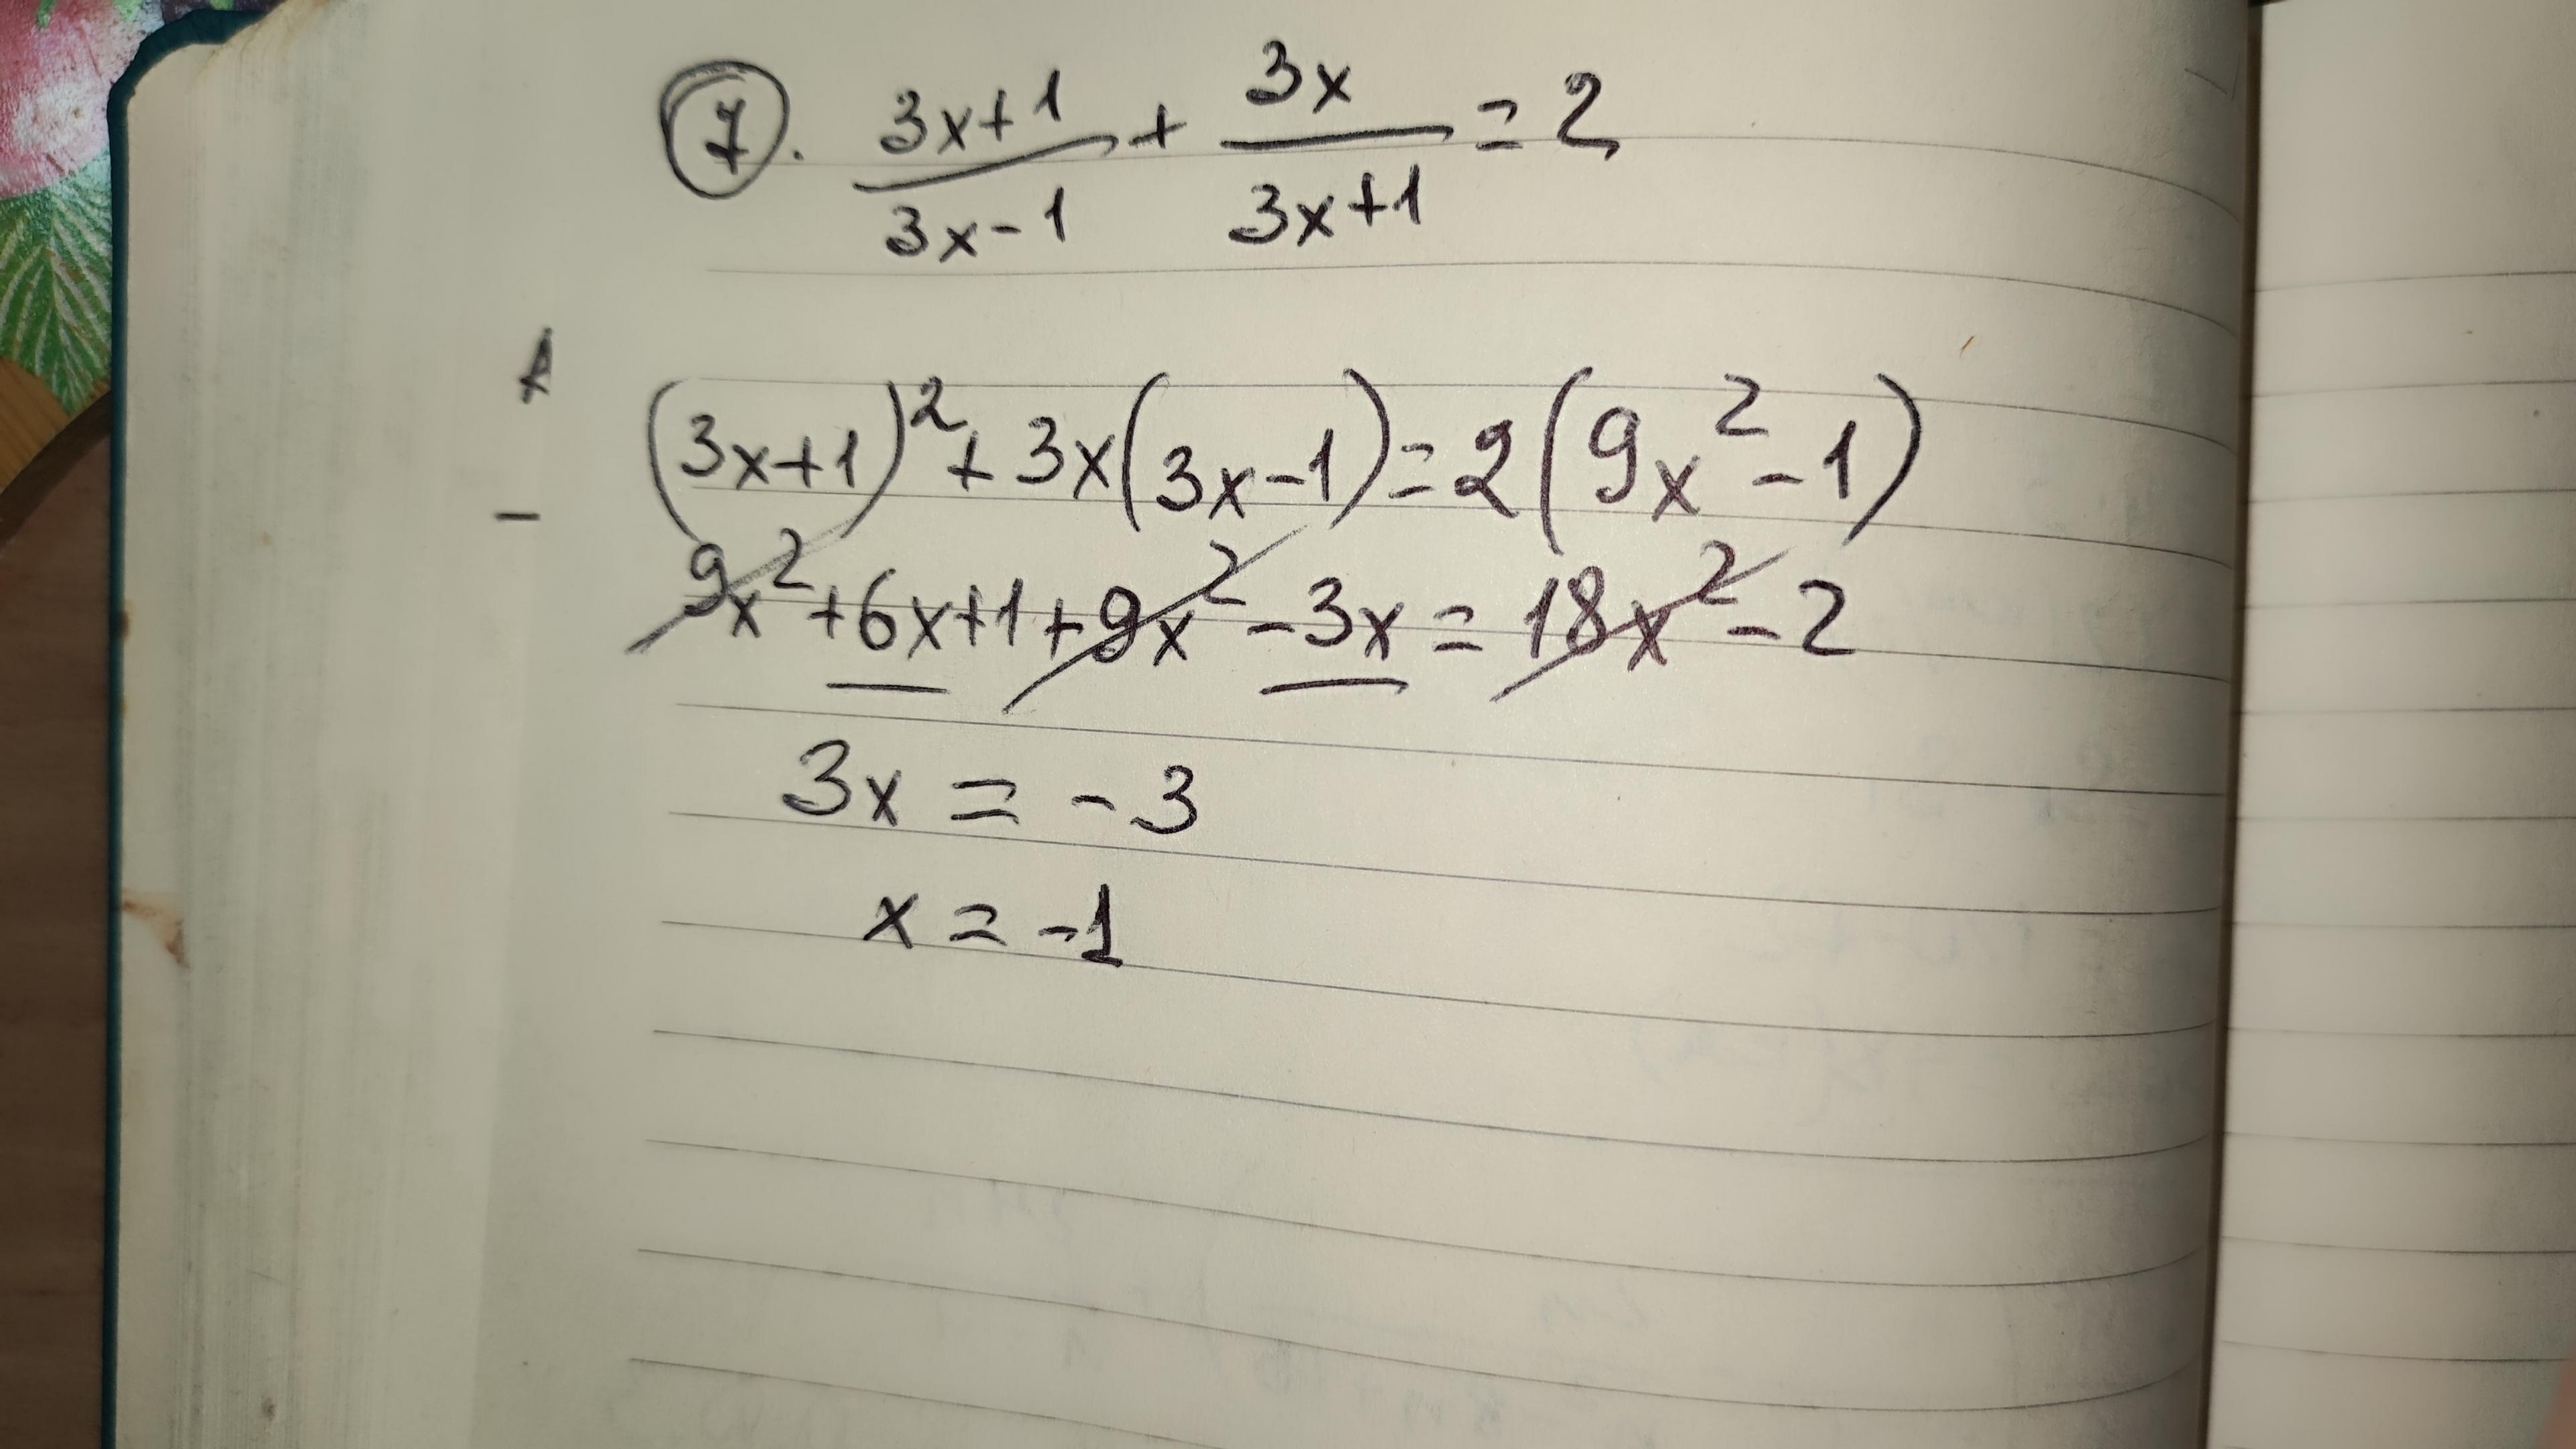 7. (3x+1)/(3x-1) + 3x/(3x+1) = 2
+
(3x+1)² + 3x(3x-1) = 2(9x² - 1)
-
9x² + 6x + 1 + 9x² - 3x = 18x² - 2
3x = -3
x = -1